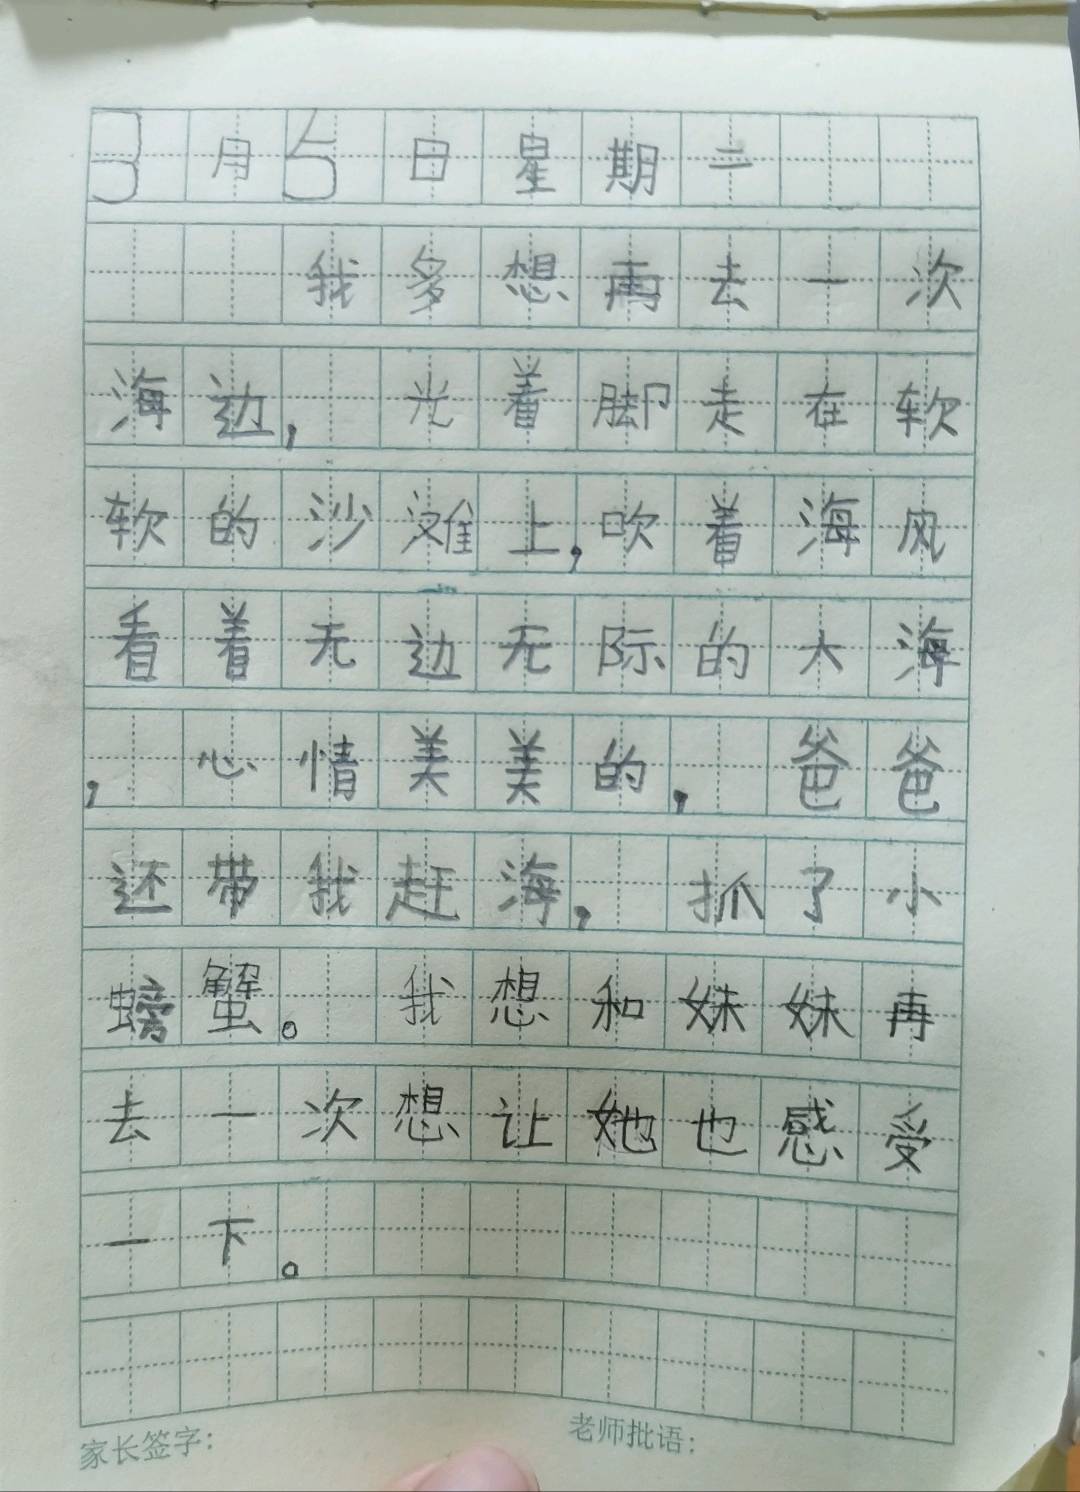 3月5日星期二
我多想再去一次
海边，光着脚走在软
软的沙滩上，吹着海风
看着无边无际的大海
，心情美美的，爸爸
还带我赶海，抓了小
螃蟹。我想和妹妹再
去一次想让她也感受
一下。
家长签字： 老师批语：